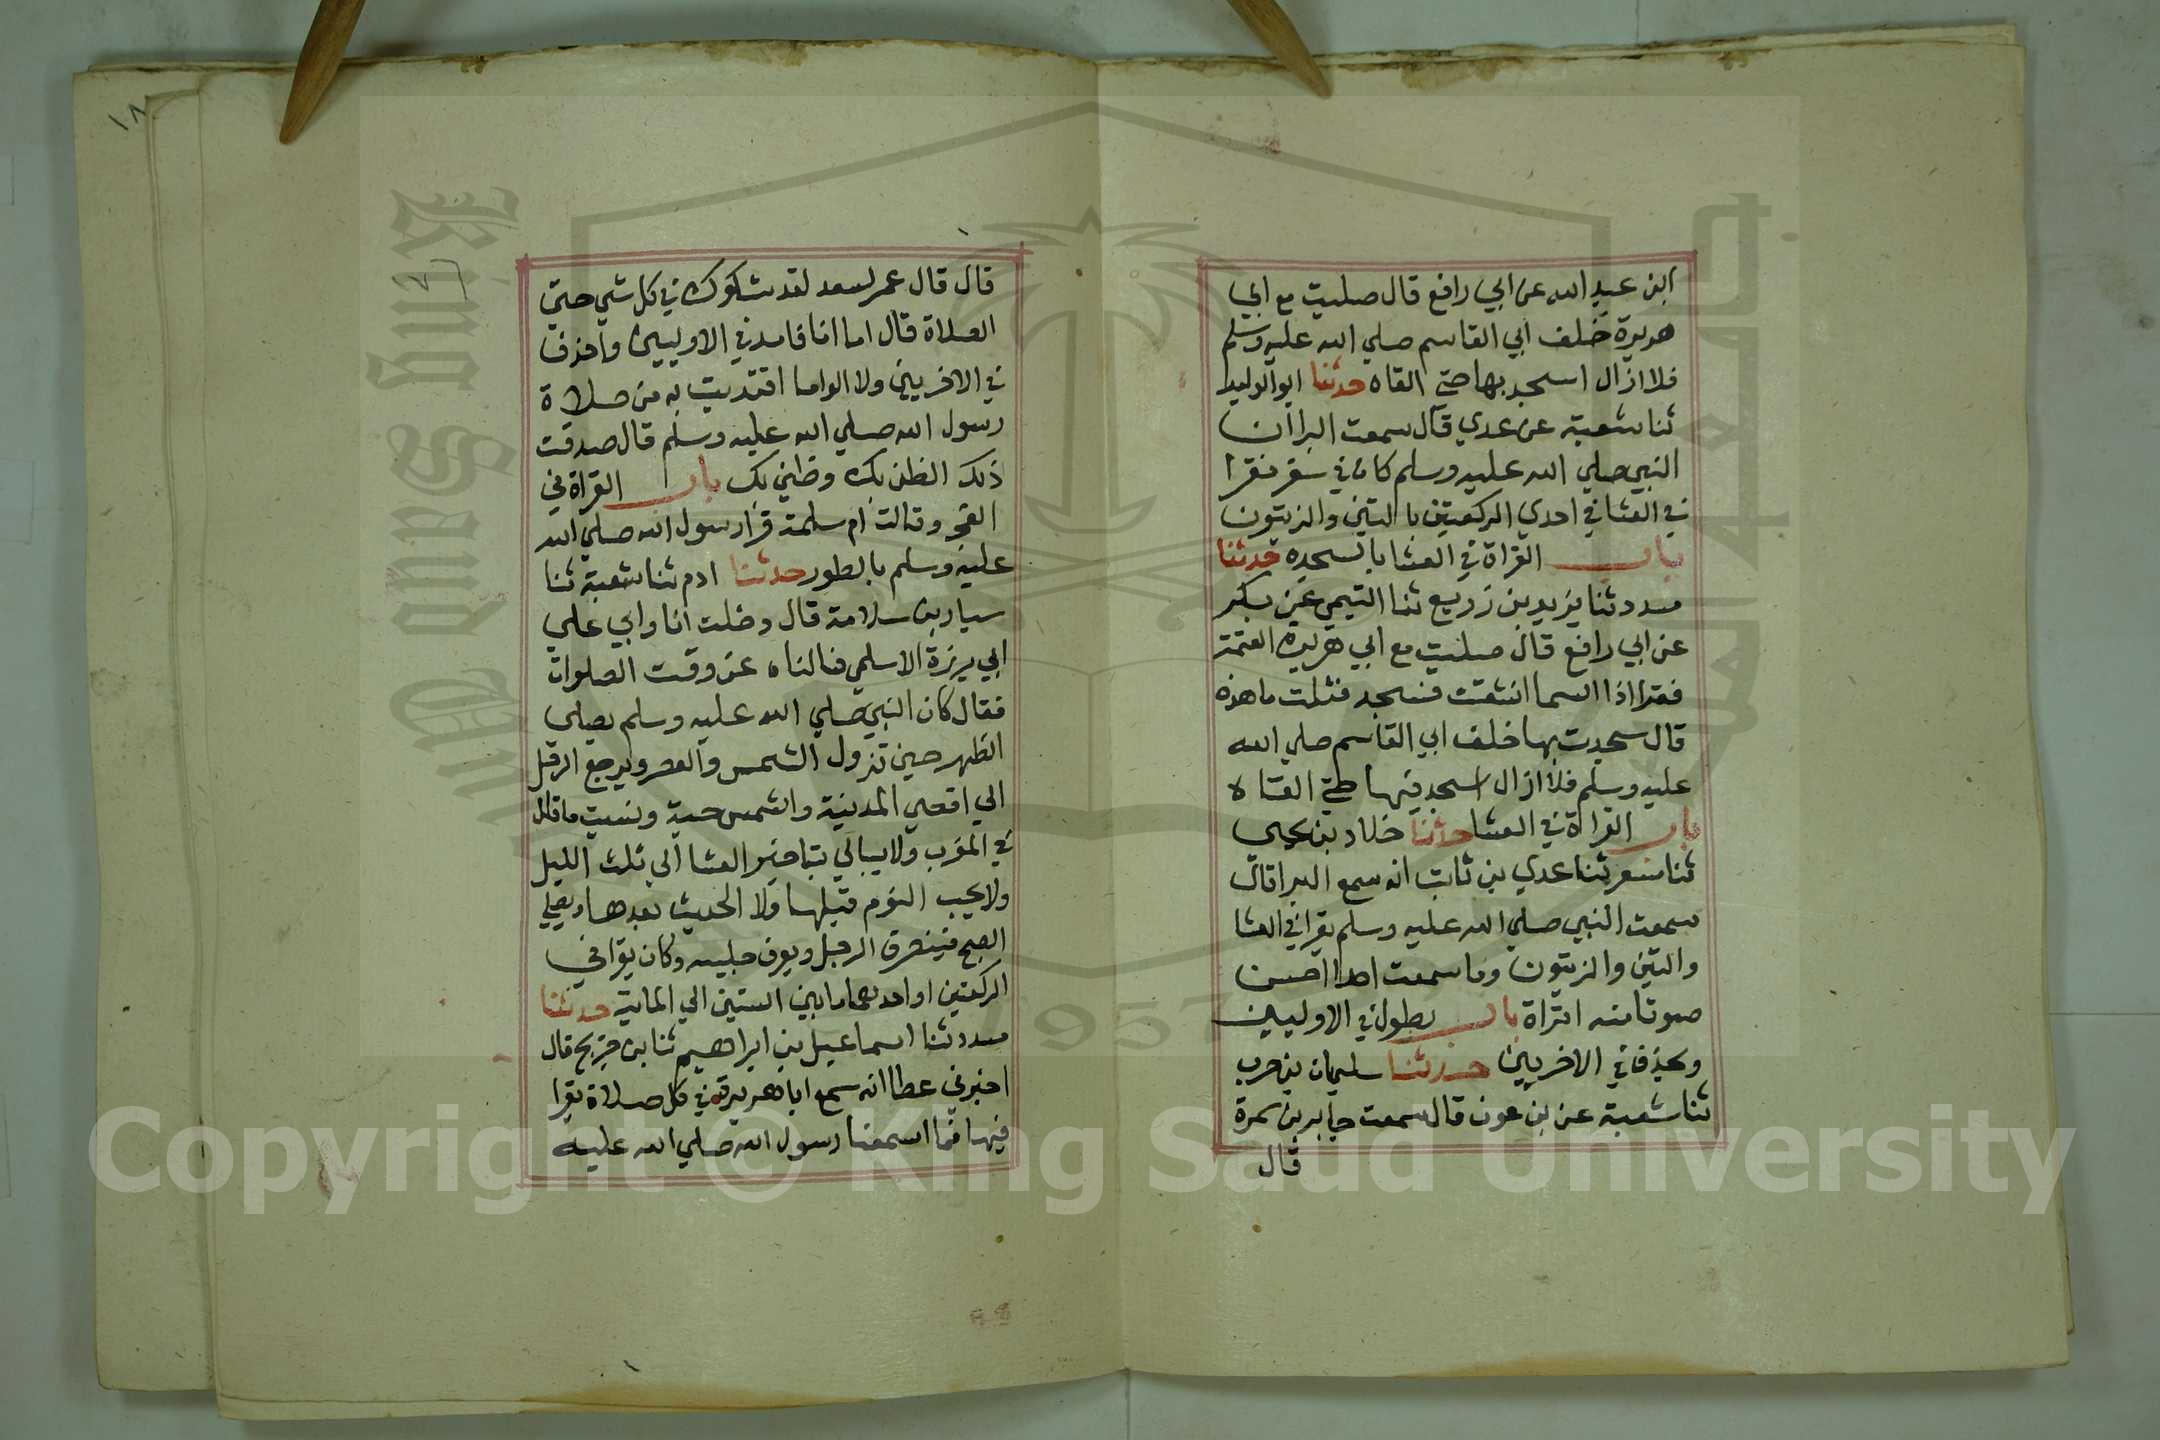 ابن عبد الله عن ابي رافع قال صليت مع ابي
هريرة خلف ابي القاسم صلي الله عليه وسلم
فلا ازال اسجد بها حتي القاه حدثنا ابو الوليد
ثنا شعبة عن عدي قال سمعت البرا ان
النبي صلي الله عليه وسلم كان في سفر فقرا
في العشا في احدي الركعتين بالتين والزيتون
باب القراة في العشا بالسجده حدثنا
مسدد ثنا يزيد بن زريع ثنا التيمي عن بكر
عن ابي رافع قال صليت مع ابي هريره العتمة
فقرا اذا السما انشقت فسجد فقلت ما هذه
قال سجدت بها خلف ابي القاسم صلي الله
عليه وسلم فلا ازال اسجد فيها حتي القاه
باب القراة في العشا حدثنا خلاد بن يحيى
ثنا مسعر ثنا عدي بن ثابت انه سمع البرا قال
سمعت النبي صلي الله عليه وسلم يقرا في العشا
والتين والزيتون وما سمعت احدا احسن
صوتا منه او قراة باب يطول في الاوليين
ويحذف في الاخريين حدثنا سليمان بن حرب
ثنا شعبة عن بن عون قال سمعت جابر بن سمرة
قال
قال قال عمر لسعد لقد شكوك في كل شي حتي
الصلاة قال اما انا فامد في الاوليين واحذف
في الاخريين ولا الوا ما اقتديت به من صلاة
رسول الله صلي الله عليه وسلم قال صدقت
ذلك الظن بك وظني بك باب القراة في
الفجر وقالت ام سلمة قرا رسول الله صلي الله
عليه وسلم بالطور حدثنا ادم ثنا شعبة ثنا
سيار بن سلامة قال دخلت انا وابي علي
ابي برزة الاسلمي فسالناه عن وقت الصلوات
فقال كان النبي صلي الله عليه وسلم يصلي
الظهر حين تزول الشمس والعصر ويرجع الرجل
الي اقصي المدينة والشمس حية ونسيت ما قال
في المغرب ولا يبالي بتاخير العشا الي ثلث الليل
ولا يحب النوم قبلها ولا الحديث بعدها ويصلي
الصبح فينصرف الرجل ويعرف جليسه وكان يقرا في
الركعتين او احديهما ما بين الستين الي الماية حدثنا
مسدد ثنا اسماعيل بن ابراهيم ثنا بن جريج قال
اخبرني عطا انه سمع ابا هريرة في كل صلاة يقرا
فيها فما اسمعنا رسول الله صلي الله عليه
King Saud University
1957
Copyright © King Saud University